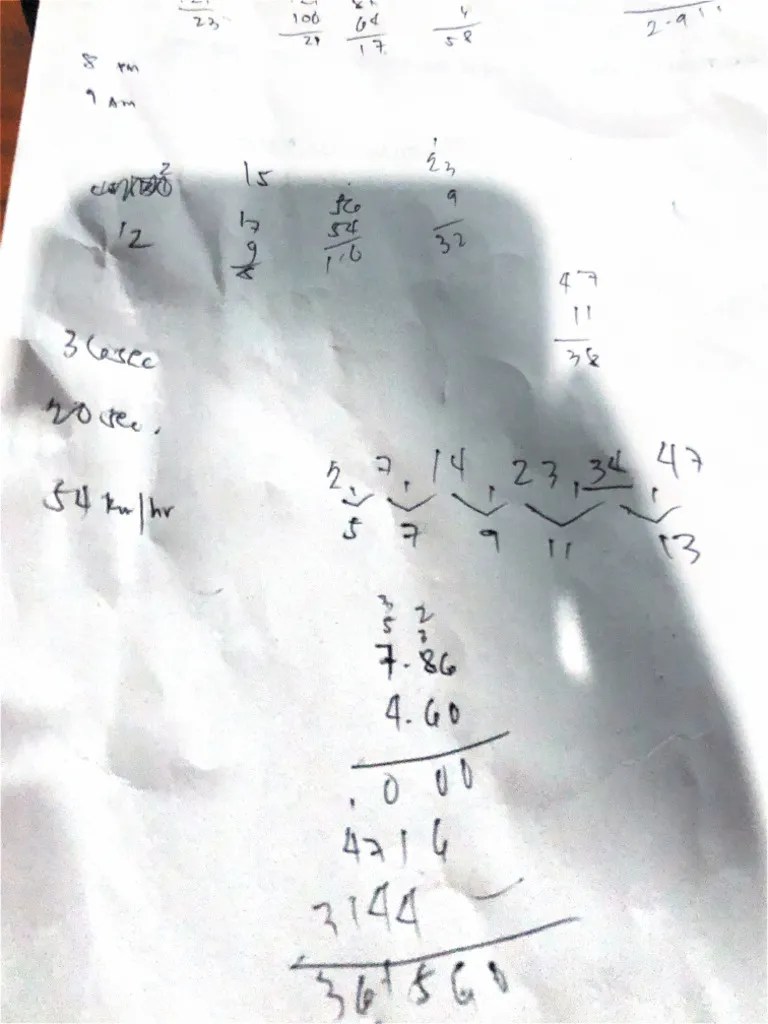 23
100
64
21
17
4
58
2.911
8 PM
9 AM
2
12
15
17
9
8
56
54
110
1
23
9
32
47
11
38
36 sec
20 sec.
54 km/hr
2, 7, 14, 23, 34, 47
5 7 9 11 13
3 2
5 3
7.86
4.60
.0 00
4716
3144
361560